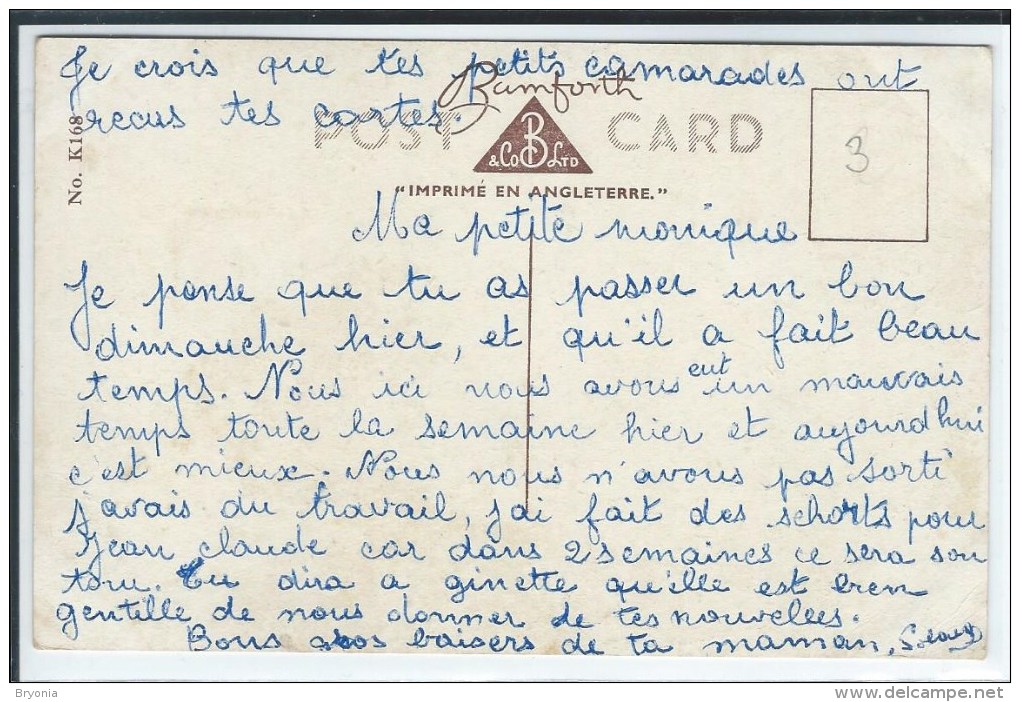 Je crois que tes petits camarades ont
recus tes cartes.
Bamforth
POST CARD
& Co B LTD
"IMPRIMÉ EN ANGLETERRE."
No. K168
3
Ma petite monique
Je pense que tu as passer un bon
dimanche hier, et qu'il a fait beau
temps. Nous ici nous avons eut un mauvais
temps toute la semaine hier et aujourd'hui
c'est mieux. Nous nous n'avons pas sorti
j'avais du travail, j'ai fait des schorts pour
Jean claude car dans 2 semaines ce sera son
tour. tu dira a ginette qu'elle est bien
gentille de nous donner de tes nouvelles.
Bons gros baisers de ta maman,
Bryonia
www.delcampe.net